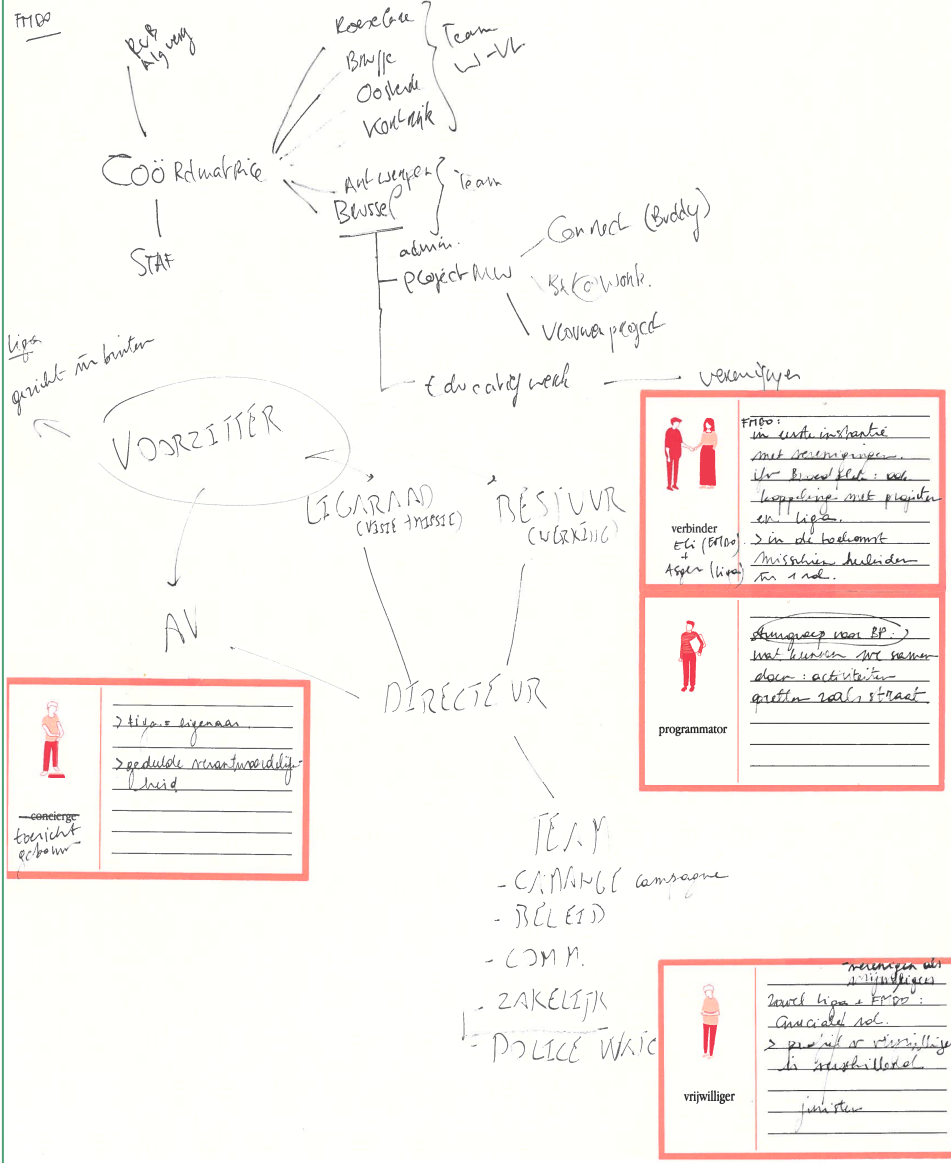 FMDO
RvB
Alg verg
Roeselare
Brugge
Oostende
Kortrijk
Team
W-VL
Coördinatrice
Antwerpen
Brussel
Team
STAF
admin.
project MW
Connect (Buddy)
work.
Vrouwenproject
Educatief werk
verenigingen
Liga
gezicht nr buiten
VOORZITTER
LIGARAAD
(VISIE + MISSIE)
BESTUUR
(WERKING)
AV
DIRECTEUR
TEAM
- CHANGE campagne
- BELEID
- COMM.
- ZAKELIJK
- POLICE WATC
verbinder
Eli (FMDO)
+
(Liga)
FMDO:
in eerste instantie
met verenigingen.
ook
koppeling met projecten
en Liga.
> in de toekomst
misschien herleiden
tot 1 rol.
programmator
stuurgroep voor BP: >
wat kunnen we samen
doen: activiteiten
opzetten zoals straat.
concierge
toezicht
gebouw
> Liga = eigenaar.
> gedeelde verantwoordelijk-
heid
vrijwilliger
- verenigen als
vrijwilligers
Zowel Liga + FMDO:
cruciale rol.
> profiel v vrijwilliger
is verschillend
juristen